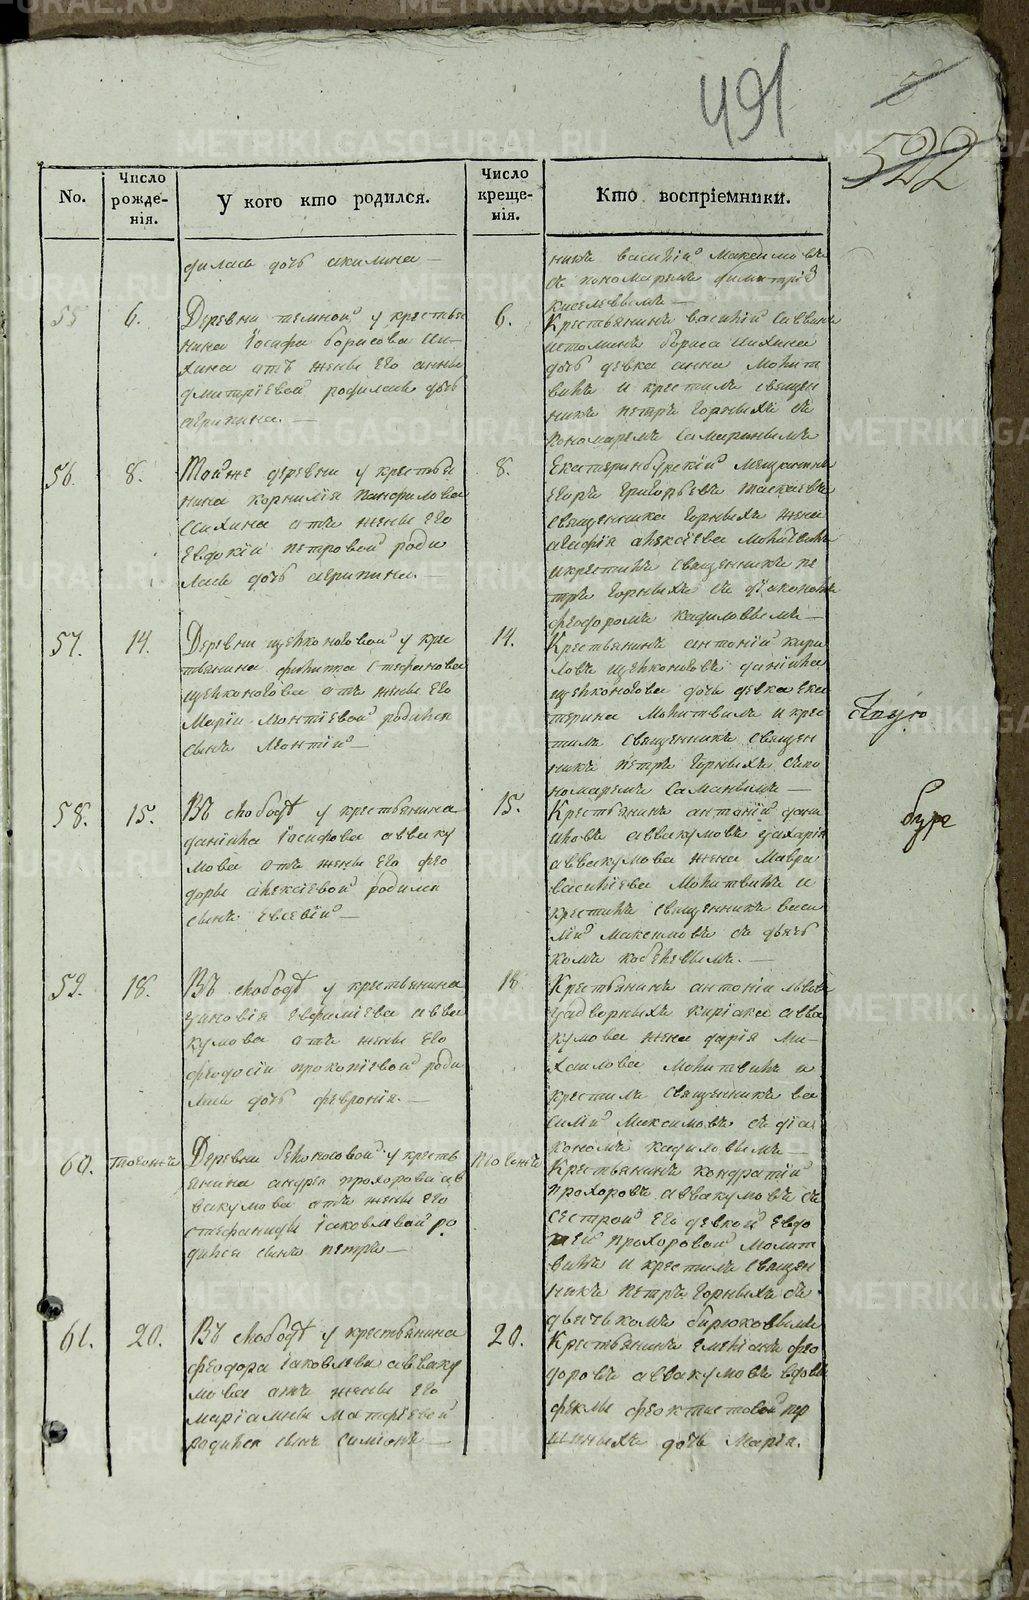 491
522
No.
Число рожде-нія.
У кого кто родился.
Число креще-нія.
Кто воспріемники.
дилась дочь акилина —
никъ василій Максимовъ
съ пономаремъ димитріе
киселевымъ —
55
6.
Деревни темной у крестья
нина Іосифа борисова
отъ жены его анны
дмитріевой родилась дочь
агрипина. —
6.
Крестьянинъ василій саввинъ
истоминъ бориса
дочь девка анна Молит
вилъ и крестилъ священ
никъ петръ Горныхъ съ
пономаремъ Самаринымъ
56.
8.
Той же деревни у крестья
нина корнилія панфилова
отъ жены его
Евдокіи петровой роди
лась дочь агрипина. —
8.
Екатеринбургскій мещанинъ
Егоръ Григорьевъ
священника Горныхъ жена
агафія алексіева Молитвилъ
и крестилъ священникъ пе
тръ Горныхъ съ діакономъ
феодоромъ кадиловымъ —
57.
14.
Деревни щелконоговой у крес
тьянина филипа стефанова
щелконогова отъ жены его
Маріи Леонтіевой родился
сынъ Леонтій —
14.
Крестьянинъ антоній кири
ловъ щелконоговъ даніила
щелконогова дочь девка Ека
терина Молитвилъ и крес
тилъ священникъ священ
никъ петръ Горныхъ съ по
номаремъ
58.
15.
Въ слободѣ у крестьянина
даніила Іосифова авваку
мова отъ жены его фео
доры алексіевой родился
сынъ Евсевій —
15.
Крестьянинъ антоній дани
иловъ аввакумовъ захарія
аввакумова жена Мавра
василіева Молитвилъ и
крестилъ священникъ васи
лій Максимовъ съ дьяч
комъ кобелевымъ. —
59.
18.
Въ слободѣ у крестьянина
зиновія Евфиміева авва
кумова отъ жены его
феодосіи прокопіевой роди
лась дочь февронія. —
18
Крестьянинъ антоніа львовъ
задворныхъ киріака авва
кумова жена дарія Ми-
хаилова Молитвилъ и
крестилъ священникъ ва
силій Максимовъ съ діа
кономъ кадиловымъ —
60.
тогожъ
Деревни белоносовой у кресть
янина андрея прохорова ав
вакумова отъ жены его
стефаниды Іаковлевой ро
дился сынъ петръ —
тогожъ
Крестьянинъ кондратій
прохоровъ аввакумовъ съ
сестрой его девкой Евдо
кіей прохоровой Молит
вилъ и крестилъ священ
никъ петръ Горныхъ съ
дьячькомъ бирюковымъ
61.
20.
Въ слободѣ у крестьянина
феодора Іаковлева авваку
мова отъ жены его
маріамны Матфіевой
родился сынъ симеонъ —
20.
Крестьянинъ Емеліанъ фео
доровъ аввакумовъ вдовы
феклы феоктистовой
дочь Марія.